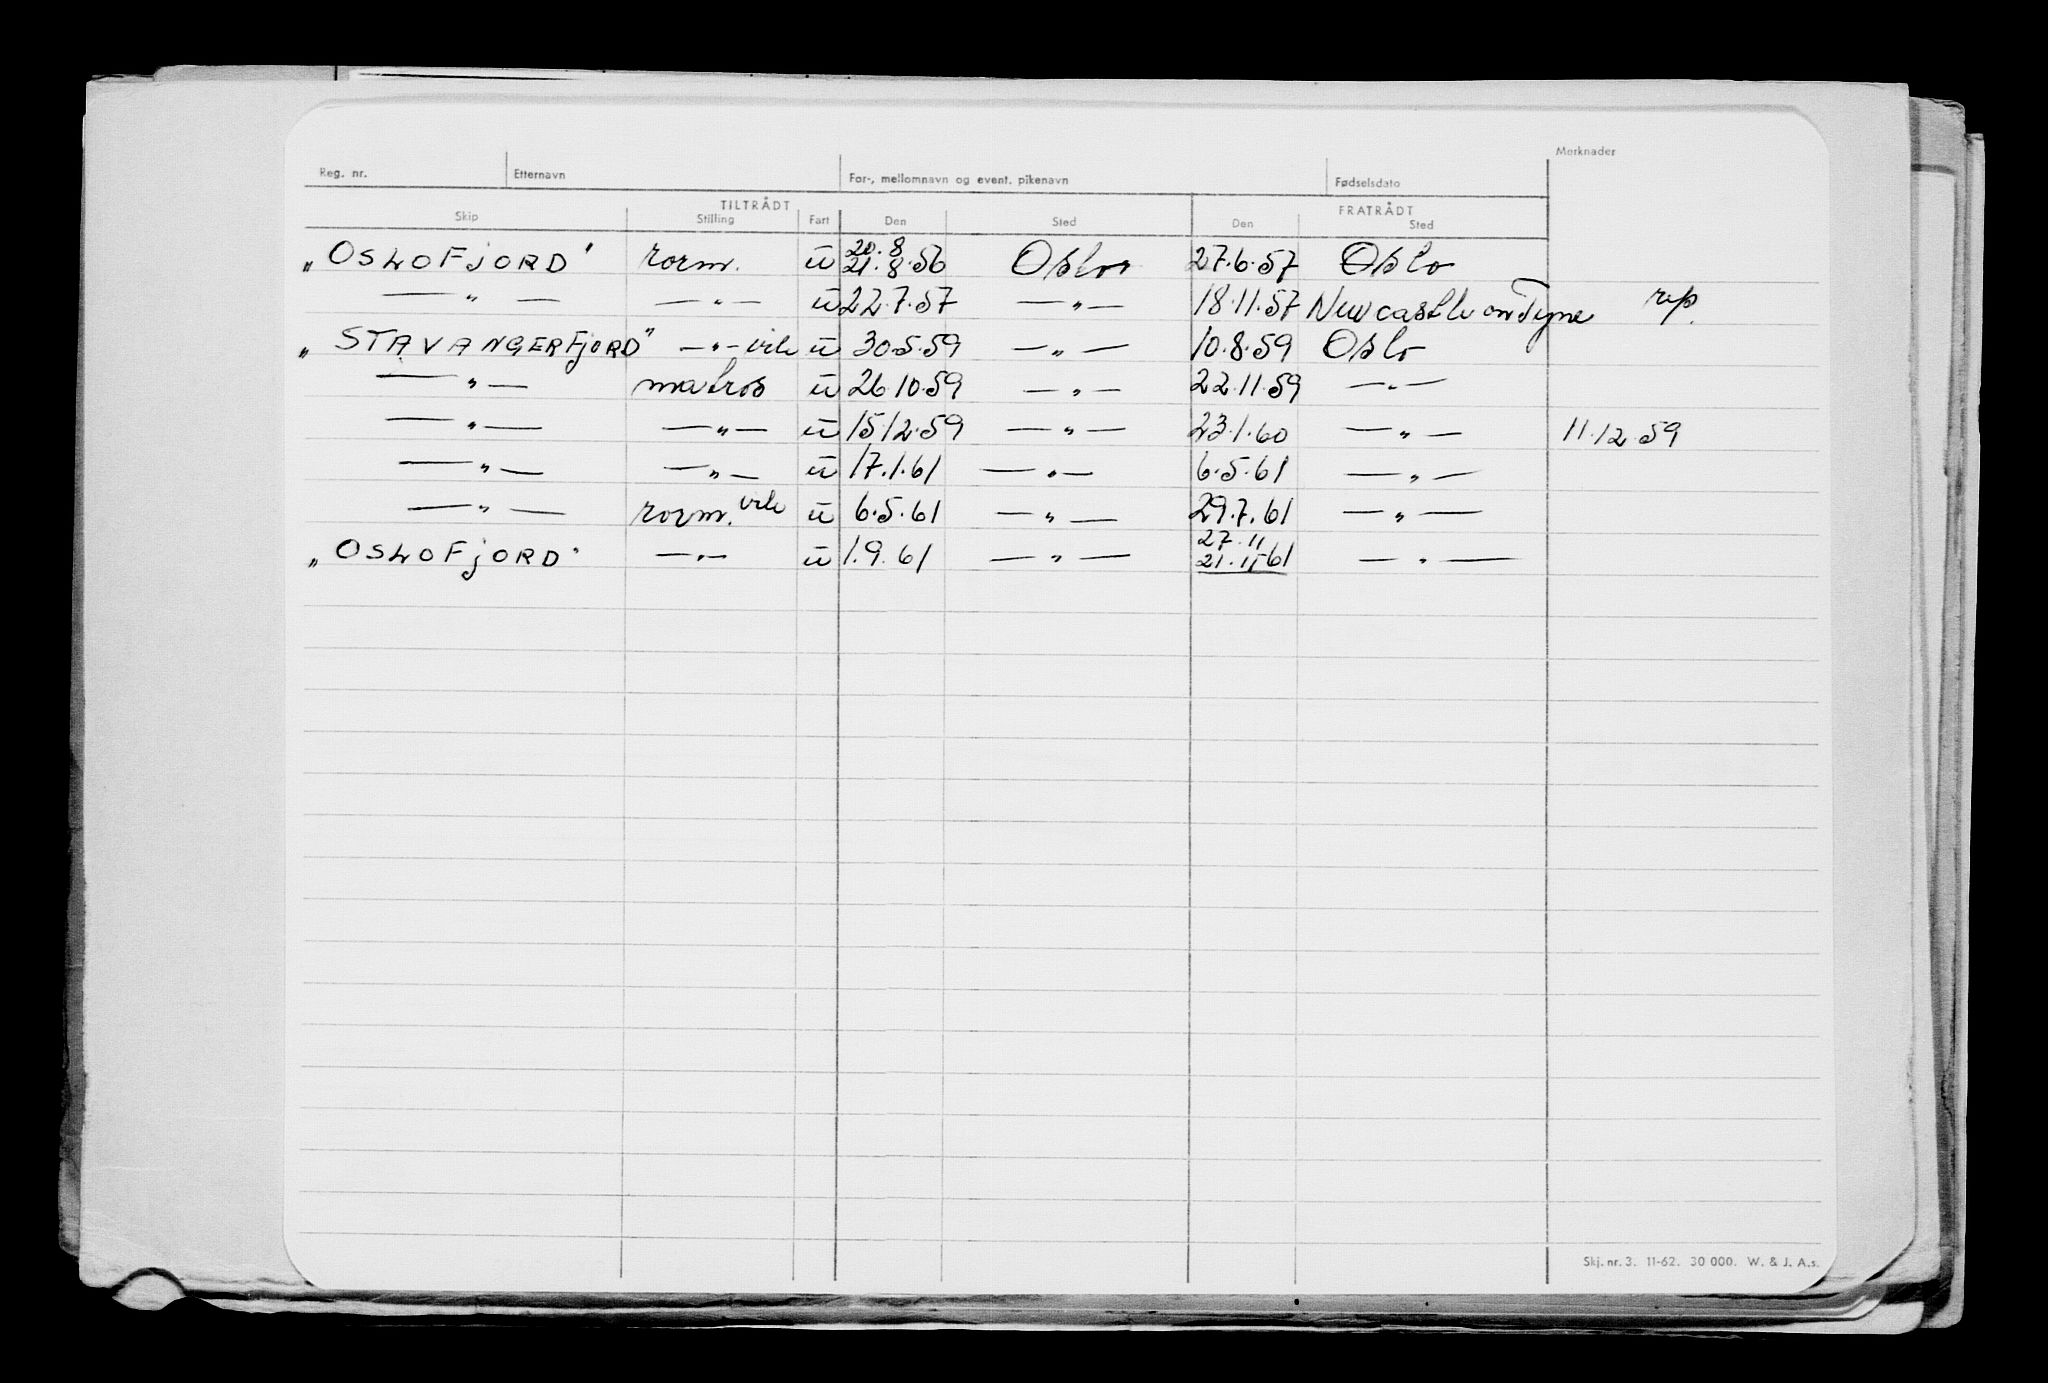 Merknader
Reg. nr. Etternavn For-, mellomnavn og event. pikenavn Fødselsdato
TILTRÅDT FRATRÅDT
Skip Stilling Fart Den Sted Den Sted
20.8
„OSLOFJORD" rorm. ū 21.8.56 Oslo 27.6.57 Oslo
— " — — " — ū 22.7.57 — " — 18.11.57 Newcastle on Tyne rep.
„STAVANGERFJORD" — " — vik ū 30.5.59 — " — 10.8.59 Oslo
— " — matros ū 26.10.59 — " — 22.11.59 — " —
— " — — " — ū 15.12.59 — " — 23.1.60 — " — 11.12.59
— " — — " — ū 17.1.61 — " — 6.5.61 — " —
— " — rorm. vik ū 6.5.61 — " — 29.7.61 — " —
27.11
„OSLOFJORD" — " — ū 1.9.61 — " — 21.11.61 — " —
Skj. nr. 3. 11-62. 30 000. W. & J. A.s.